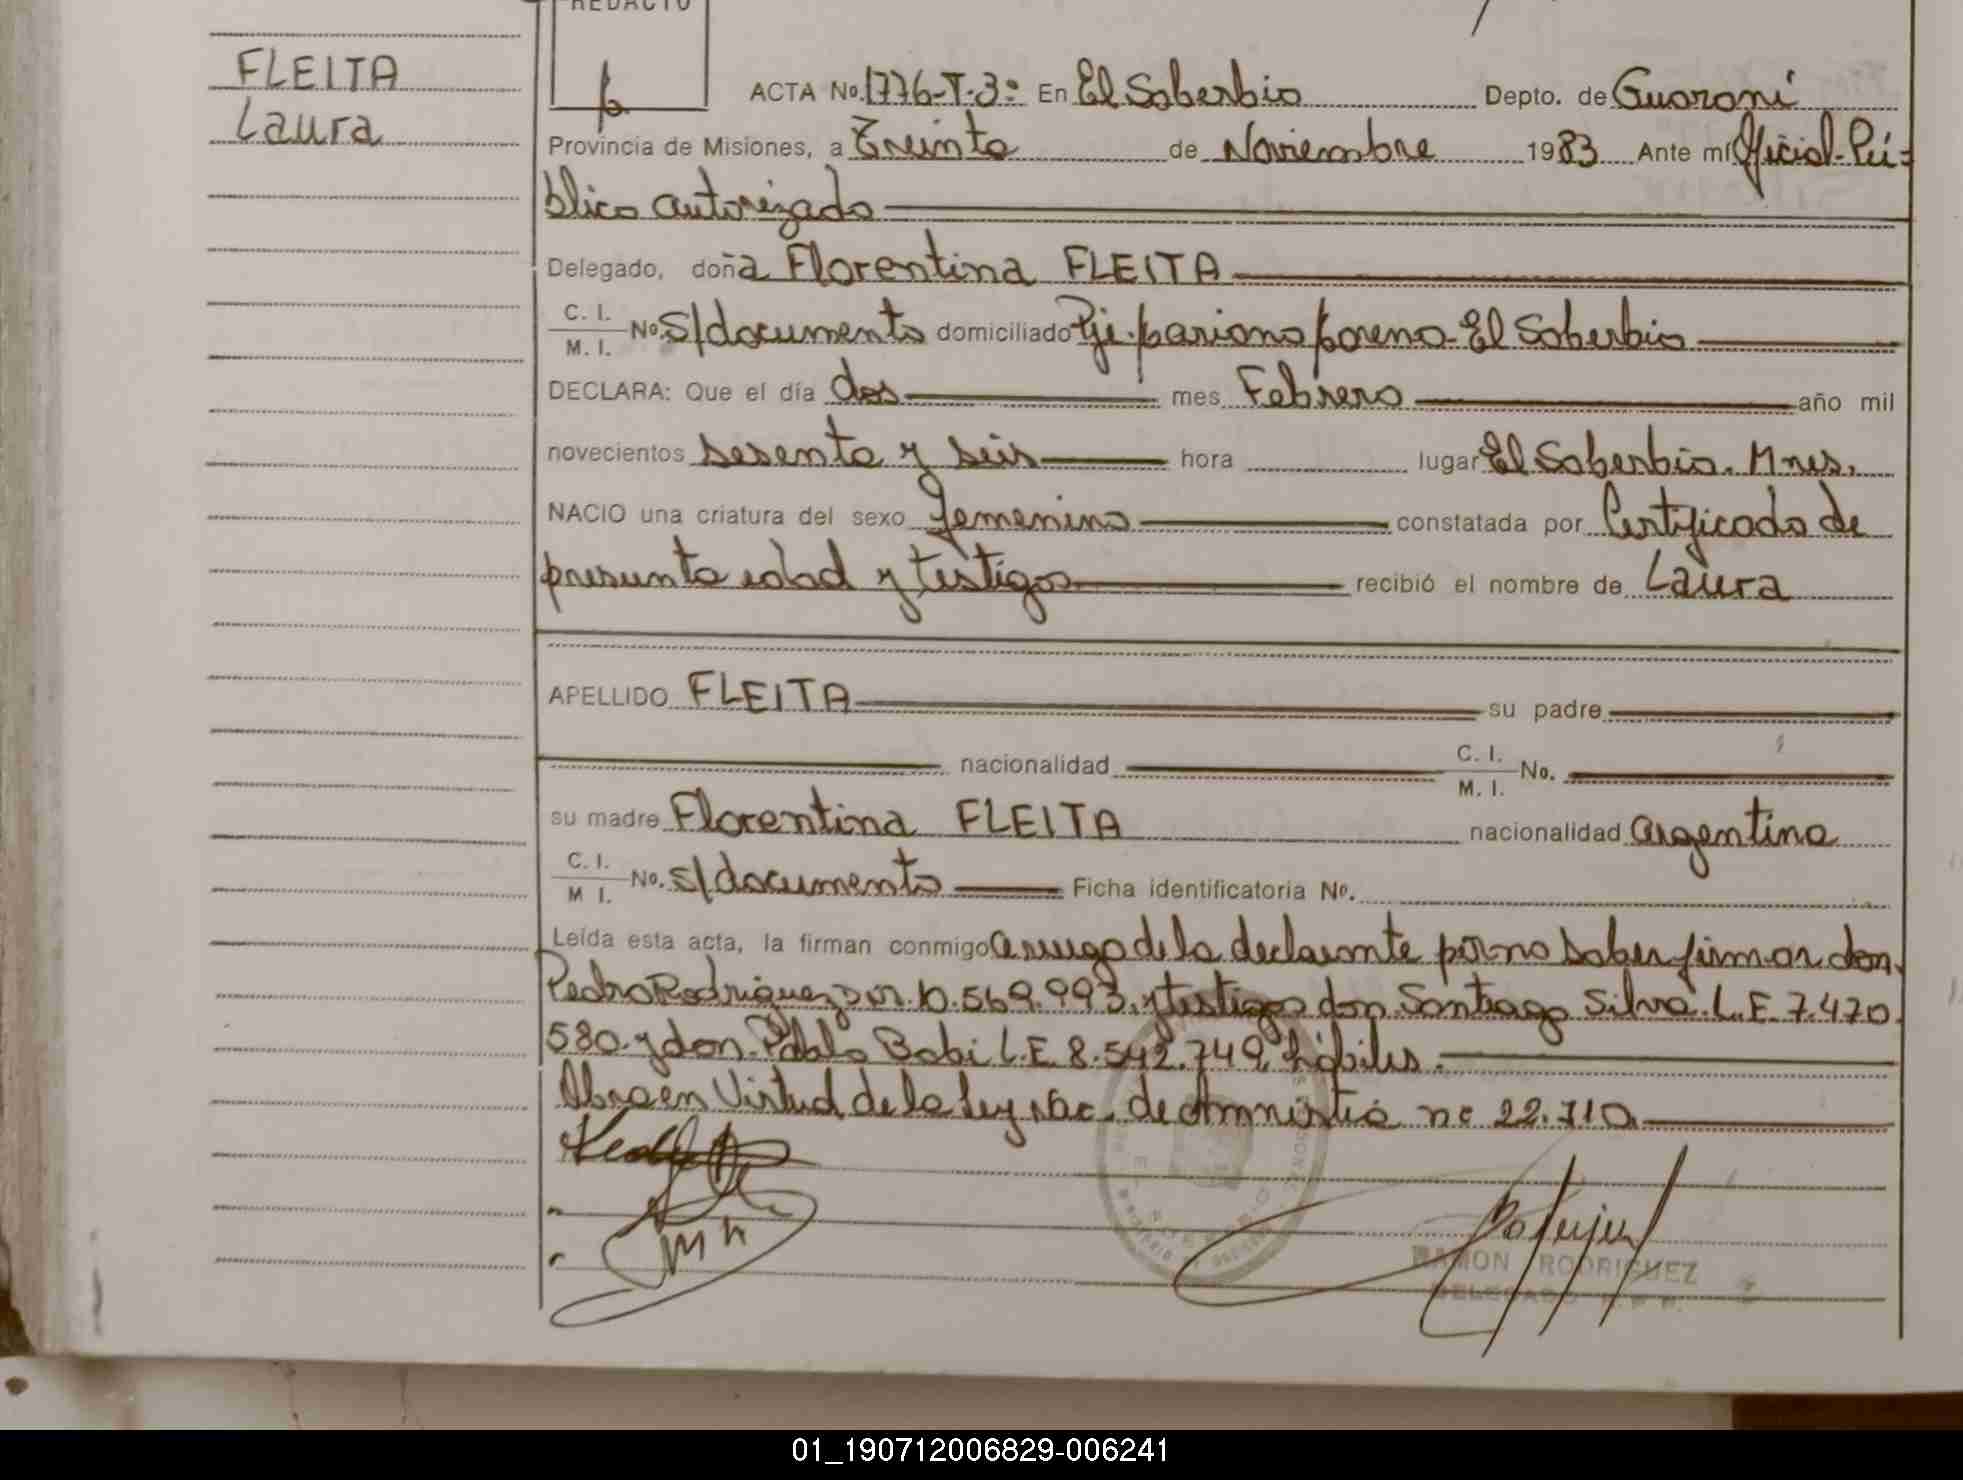 REDACTO
FLEITA
Laura
ACTA No. 1776-T-3º En El Soberbio Depto. de Guaraní
Provincia de Misiones, a Treinta de Noviembre 1983 Ante mí Oficial Pú-
blico autorizado
Delegado, doña Florentina FLEITA
C. I.
M. I.
No. S/documento domiciliado El Soberbio
DECLARA: Que el día dos mes Febrero año mil
novecientos sesenta y seis hora lugar El Soberbio. Mnes.
NACIO una criatura del sexo femenino constatada por Certificado de
presunta edad y testigos recibió el nombre de Laura
APELLIDO FLEITA su padre
nacionalidad C. I.
M. I. No.
su madre Florentina FLEITA nacionalidad argentina
C. I.
M I. No. s/documento Ficha identificatoria No.
Leída esta acta, la firman conmigo a ruego de la declarante por no saber firmar don
Pedro Rodriguez 10.569.993. y testigos don Santiago Silva. L.E. 7.470.
580. y don Pablo Bobi L.E. 8.542.749, hábiles.
Obra en Virtud de la Ley Nac. de Amnistia nº 22.710
RAMON RODRIGUEZ
DELEGADO
01_190712006829-006241